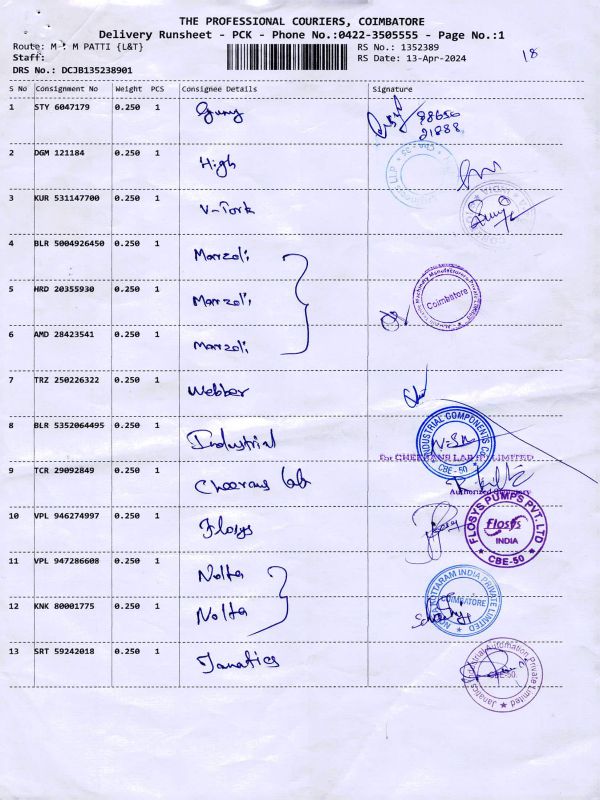 THE PROFESSIONAL COURIERS, COIMBATORE
Delivery Runsheet - PCK - Phone No.:0422-3505555 - Page No.:1
Route: M M PATTI {L&T} RS No.: 1352389
Staff: RS Date: 13-Apr-2024 18
DRS No.: DCJB135238901
S No Consignment No Weight PCS Consignee Details Signature
1 STY 6047179 0.250 1
98656
21888
2 DGM 121184 0.250 1 High
3 KUR 531147700 0.250 1 V-Tork
4 BLR 5004926450 0.250 1 Marzoli
5 HRD 20355930 0.250 1 Marzoli Coimbatore
6 AMD 28423541 0.250 1 Marzoli
7 TRZ 250226322 0.250 1 Webber
8 BLR 5352064495 0.250 1 Industrial INDUSTRIAL COMPONENTS CBE-50
For CHEERANS LAB LIMITED
9 TCR 29092849 0.250 1 Cheerans lab
Authorized
10 VPL 946274997 0.250 1 Flosys FLOSYS PUMPS PVT. LTD flosys INDIA CBE-50
11 VPL 947286608 0.250 1 Nolta
12 KNK 80001775 0.250 1 Nolta INDIA PRIVATE LIMITED COIMBATORE
13 SRT 59242018 0.250 1 Janatics Janatics Industrial Automation Private Limited CBE-50.